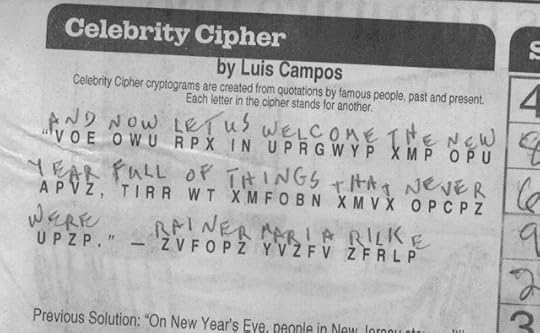 Celebrity Cipher
by Luis Campos
Celebrity Cipher cryptograms are created from quotations by famous people, past and present.
Each letter in the cipher stands for another.
AND NOW LET US WELCOME THE NEW
"VOE OWU RPX IN UPRGWYP XMP OPU
YEAR FULL OF THINGS THAT NEVER
APVZ, TIRR WT XMFOBN XMVX OPCPZ
WERE RAINER MARIA RILKE
UPZP." — ZVFOPZ YVZFV ZFRLP
Previous Solution: "On New Year's Eve, people in New Jersey
S
4
8
6
9
2
3